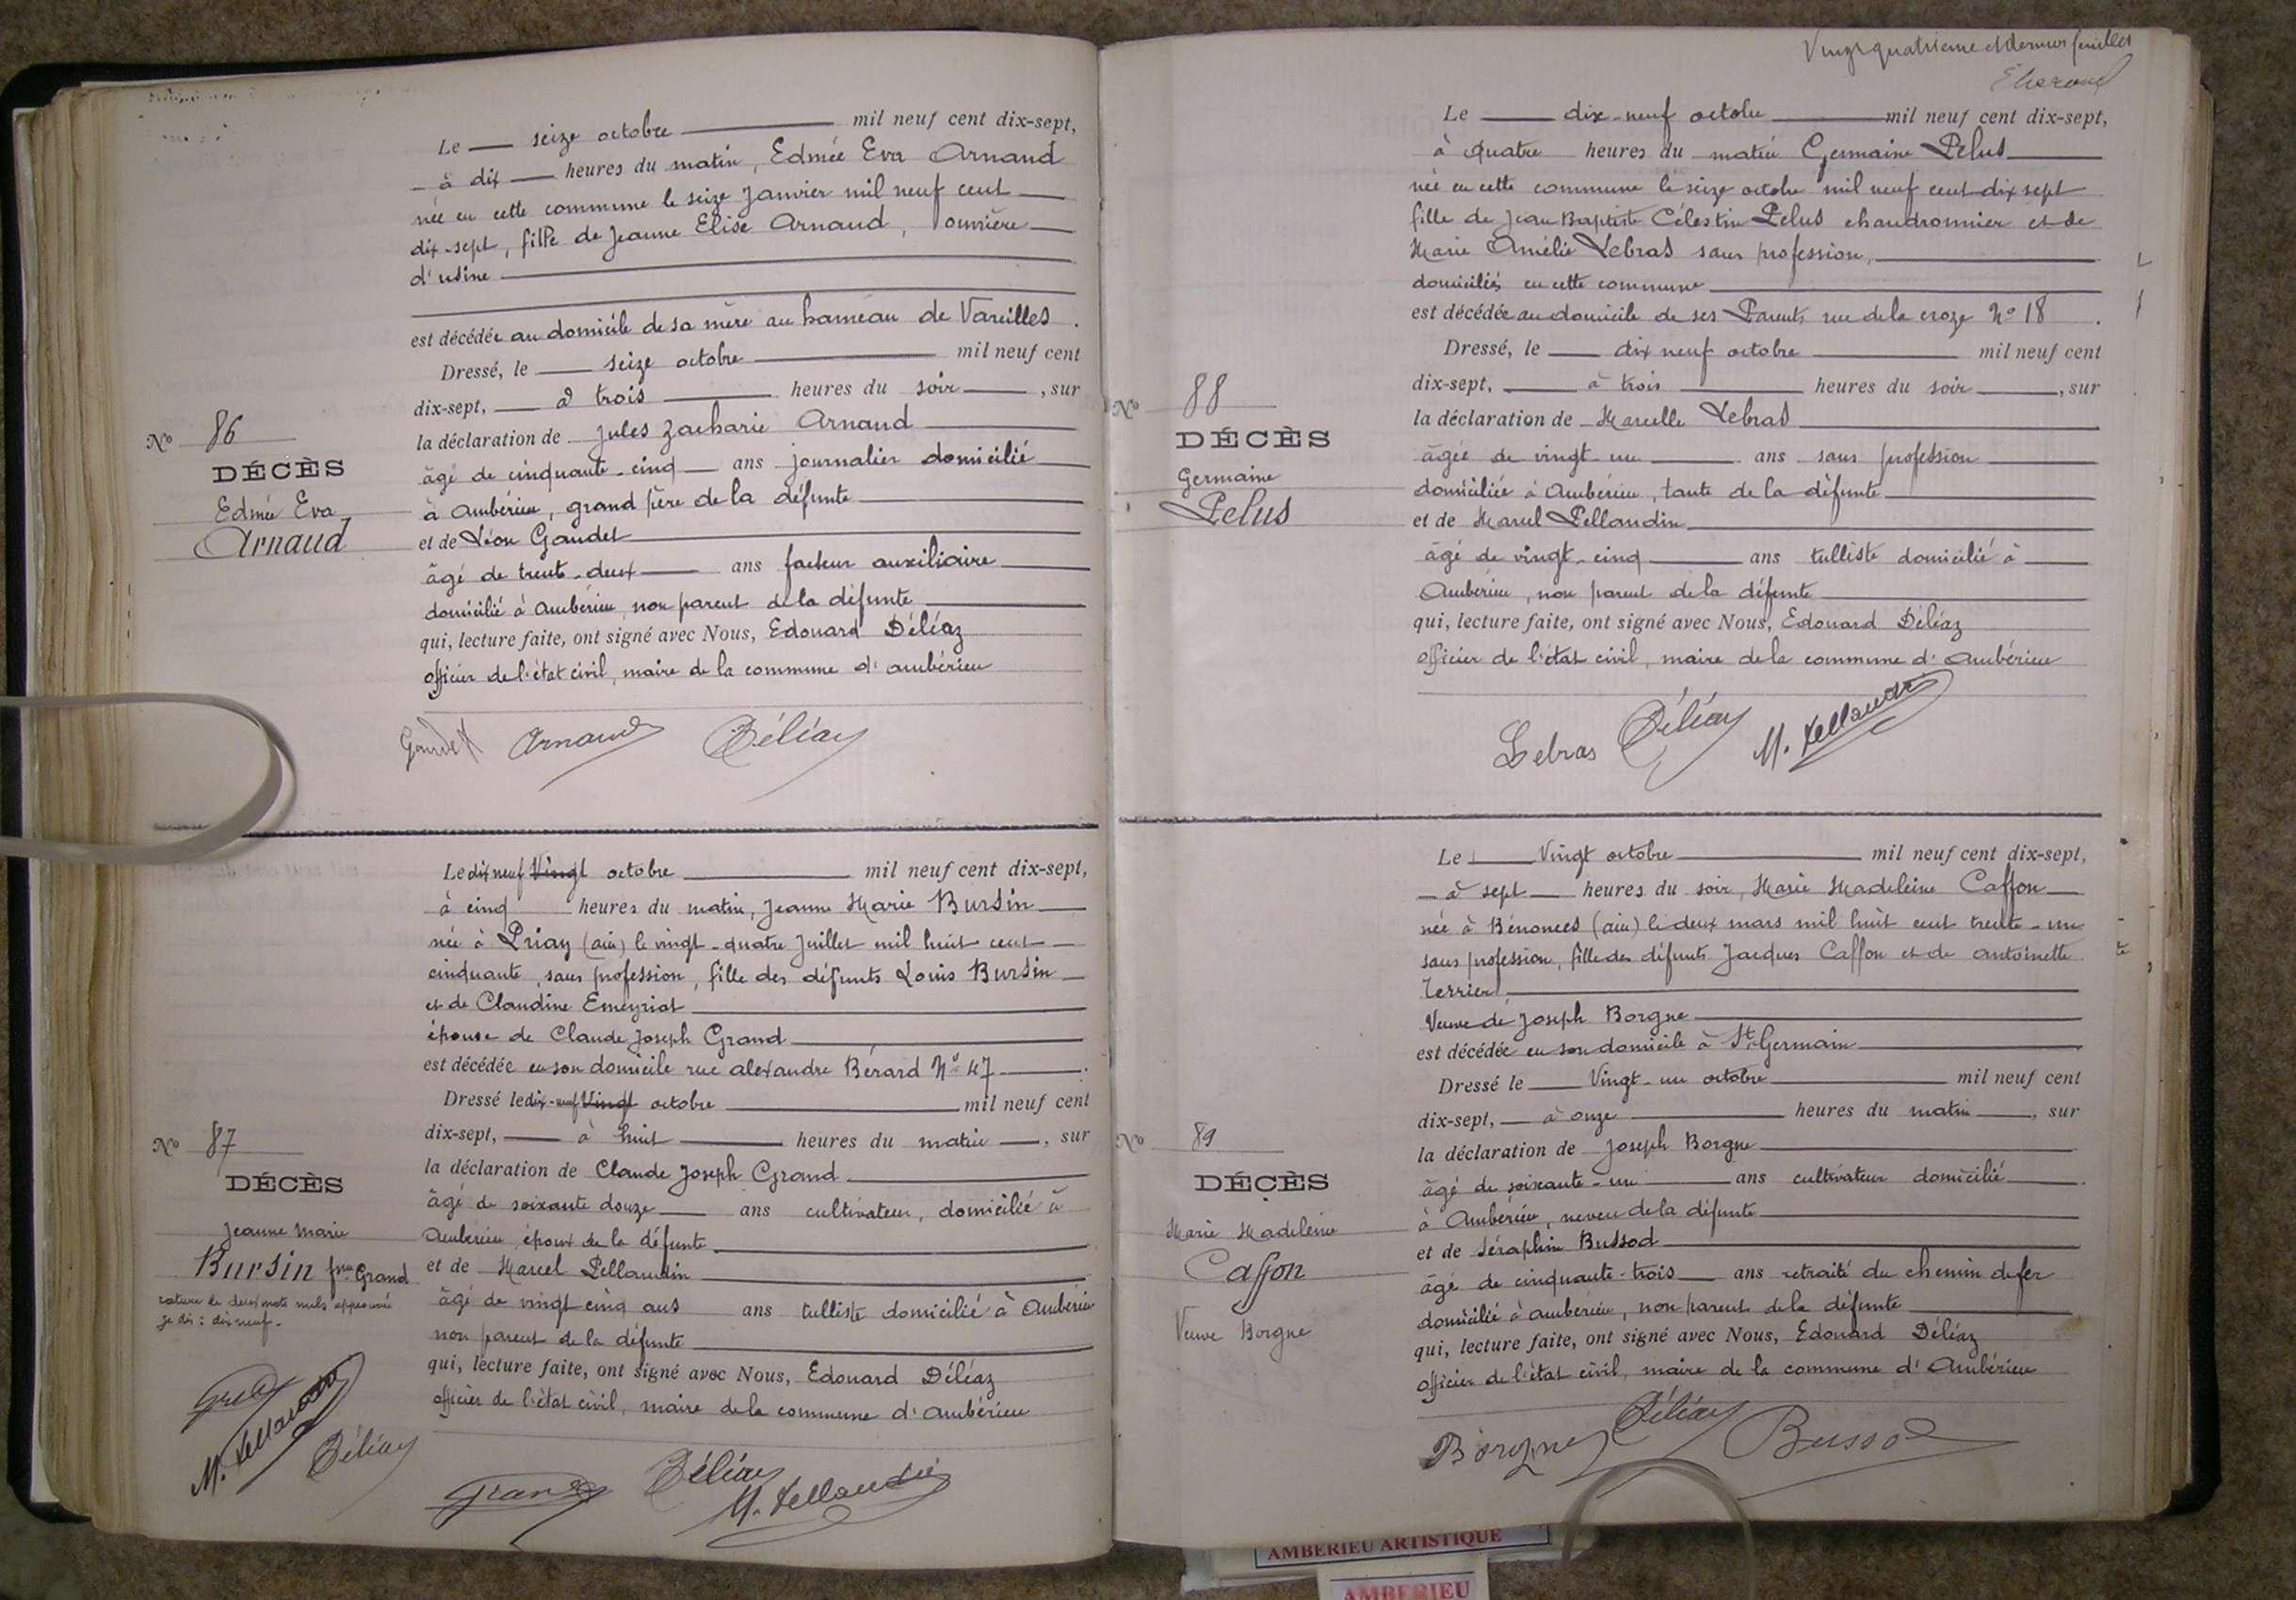 Le seize octobre mil neuf cent dix-sept,
à dix heures du matin, Edmée Eva Arnaud
née en cette commune le seize Janvier mil neuf cent
dix-sept, fille de Jeanne Elise Arnaud, ouvrière
d'usine
est décédée au domicile de sa mère au hameau de Vareilles.
Dressé, le seize octobre mil neuf cent
dix-sept, à trois heures du soir, sur
la déclaration de Jules Zacharie Arnaud
âgé de cinquante-cinq ans journalier domicilié
à Ambérieu, grand père de la défunte
et de Léon Gaudet
âgé de trente-deux ans facteur auxiliaire
domicilié à Ambérieu, non parent de la défunte
qui, lecture faite, ont signé avec Nous, Edouard Déléaz
officier de l'état civil, maire de la commune d'Ambérieu
No 86
DÉCÈS
Edmée Eva
Arnaud
Gaudet Arnaud Déléaz
Le dix neuf Vingt octobre mil neuf cent dix-sept,
à cinq heures du matin, Jeanne Marie Bursin
née à Priay (ain) le vingt-quatre Juillet mil huit cent
cinquante, sans profession, fille des défunts Louis Bursin
et de Claudine Emeyriat
épouse de Claude Joseph Grand
est décédée en son domicile rue alexandre Bérard No 47.
Dressé le dix-neuf Vingt octobre mil neuf cent
dix-sept, à huit heures du matin, sur
la déclaration de Claude Joseph Grand
âgé de soixante douze ans cultivateur, domicilié à
Ambérieu époux de la défunte
et de Marcel Pellaudin
âgé de vingt cinq ans ans tulliste domicilié à Ambérieu
non parent de la défunte
qui, lecture faite, ont signé avec Nous, Edouard Déléaz
officier de l'état civil, maire de la commune d'Ambérieu
No 87
DÉCÈS
Jeanne Marie
Bursin fme Grand
rature de deux mots nuls approuvée
je dis: dix neuf.
Grand
M. Pellaudin
Déléaz
Grand Déléaz M. Pellaudin
Vingt quatrième et dernier feuillet
Le dix-neuf octobre mil neuf cent dix-sept,
à quatre heures du matin Germaine Pelus
née en cette commune le seize octobre mil neuf cent dix sept
fille de Jean Baptiste Célestin Pelus chaudronnier et de
Marie Amélie Lebras sans profession,
domiciliés en cette commune
est décédée au domicile de ses Parents rue de la croze No 18.
Dressé, le dix neuf octobre mil neuf cent
dix-sept, à trois heures du soir, sur
la déclaration de Marcelle Lebras
âgée de vingt-un ans sans profession
domiciliée à Ambérieu, tante de la défunte
et de Marcel Pellaudin
âgé de vingt-cinq ans tulliste domicilié à
Ambérieu, non parent de la défunte
qui, lecture faite, ont signé avec Nous, Edouard Déléaz
officier de l'état civil, maire de la commune d'Ambérieu
No 88
DÉCÈS
Germaine
Pelus
Lebras Déléaz M. Pellaudin
Le Vingt octobre mil neuf cent dix-sept,
à sept heures du soir, Marie Madeleine Caffon
née à Bénonces (ain) le deux mars mil huit cent trente-un
sans profession, fille des défunts Jacques Caffon et de antoinette
Terrier,
Veuve de Joseph Borgne
est décédée en son domicile à St Germain
Dressé le Vingt-un octobre mil neuf cent
dix-sept, à onze heures du matin, sur
la déclaration de Joseph Borgne
âgé de soixante-un ans cultivateur domicilié
à Ambérieu, neveu de la défunte
et de Séraphin Bussod
âgé de cinquante-trois ans retraité du chemin de fer
domicilié à ambérieu, non parent de la défunte
qui, lecture faite, ont signé avec Nous, Edouard Déléaz
officier de l'état civil, maire de la commune d'Ambérieu
No 89
DÉCÈS
Marie Madeleine
Caffon
Veuve Borgne
Borgne Déléaz Bussod
AMBERIEU ARTISTIQUE
AMBERIEU